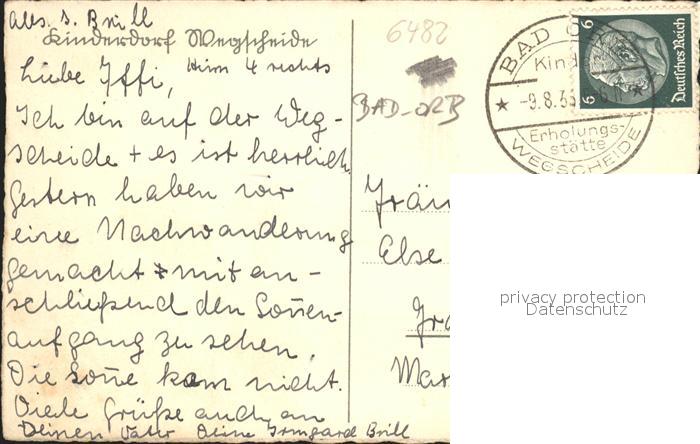 Abs. I. Brill
Kinderdorf Wegscheide
Liebe Iffi, Heim 4 rechts
Ich bin auf der Weg-
scheide + es ist herrlich.
Gestern haben wir
eine Nachwanderung
gemacht mit an-
schließend den Soñen-
aufgang zu sehen.
Die Soñe kam nicht.
Viele Grüße auch an
Deinen Vater Deine Irmgard Brill
6482
BAD-ORB
BAD O
Kind
-9.8.3
Erholungs-
stätte
WEGSCHEIDE
6 6
Deutsches Reich
Fräu
Else
Fra
Mar
privacy protection
Datenschutz